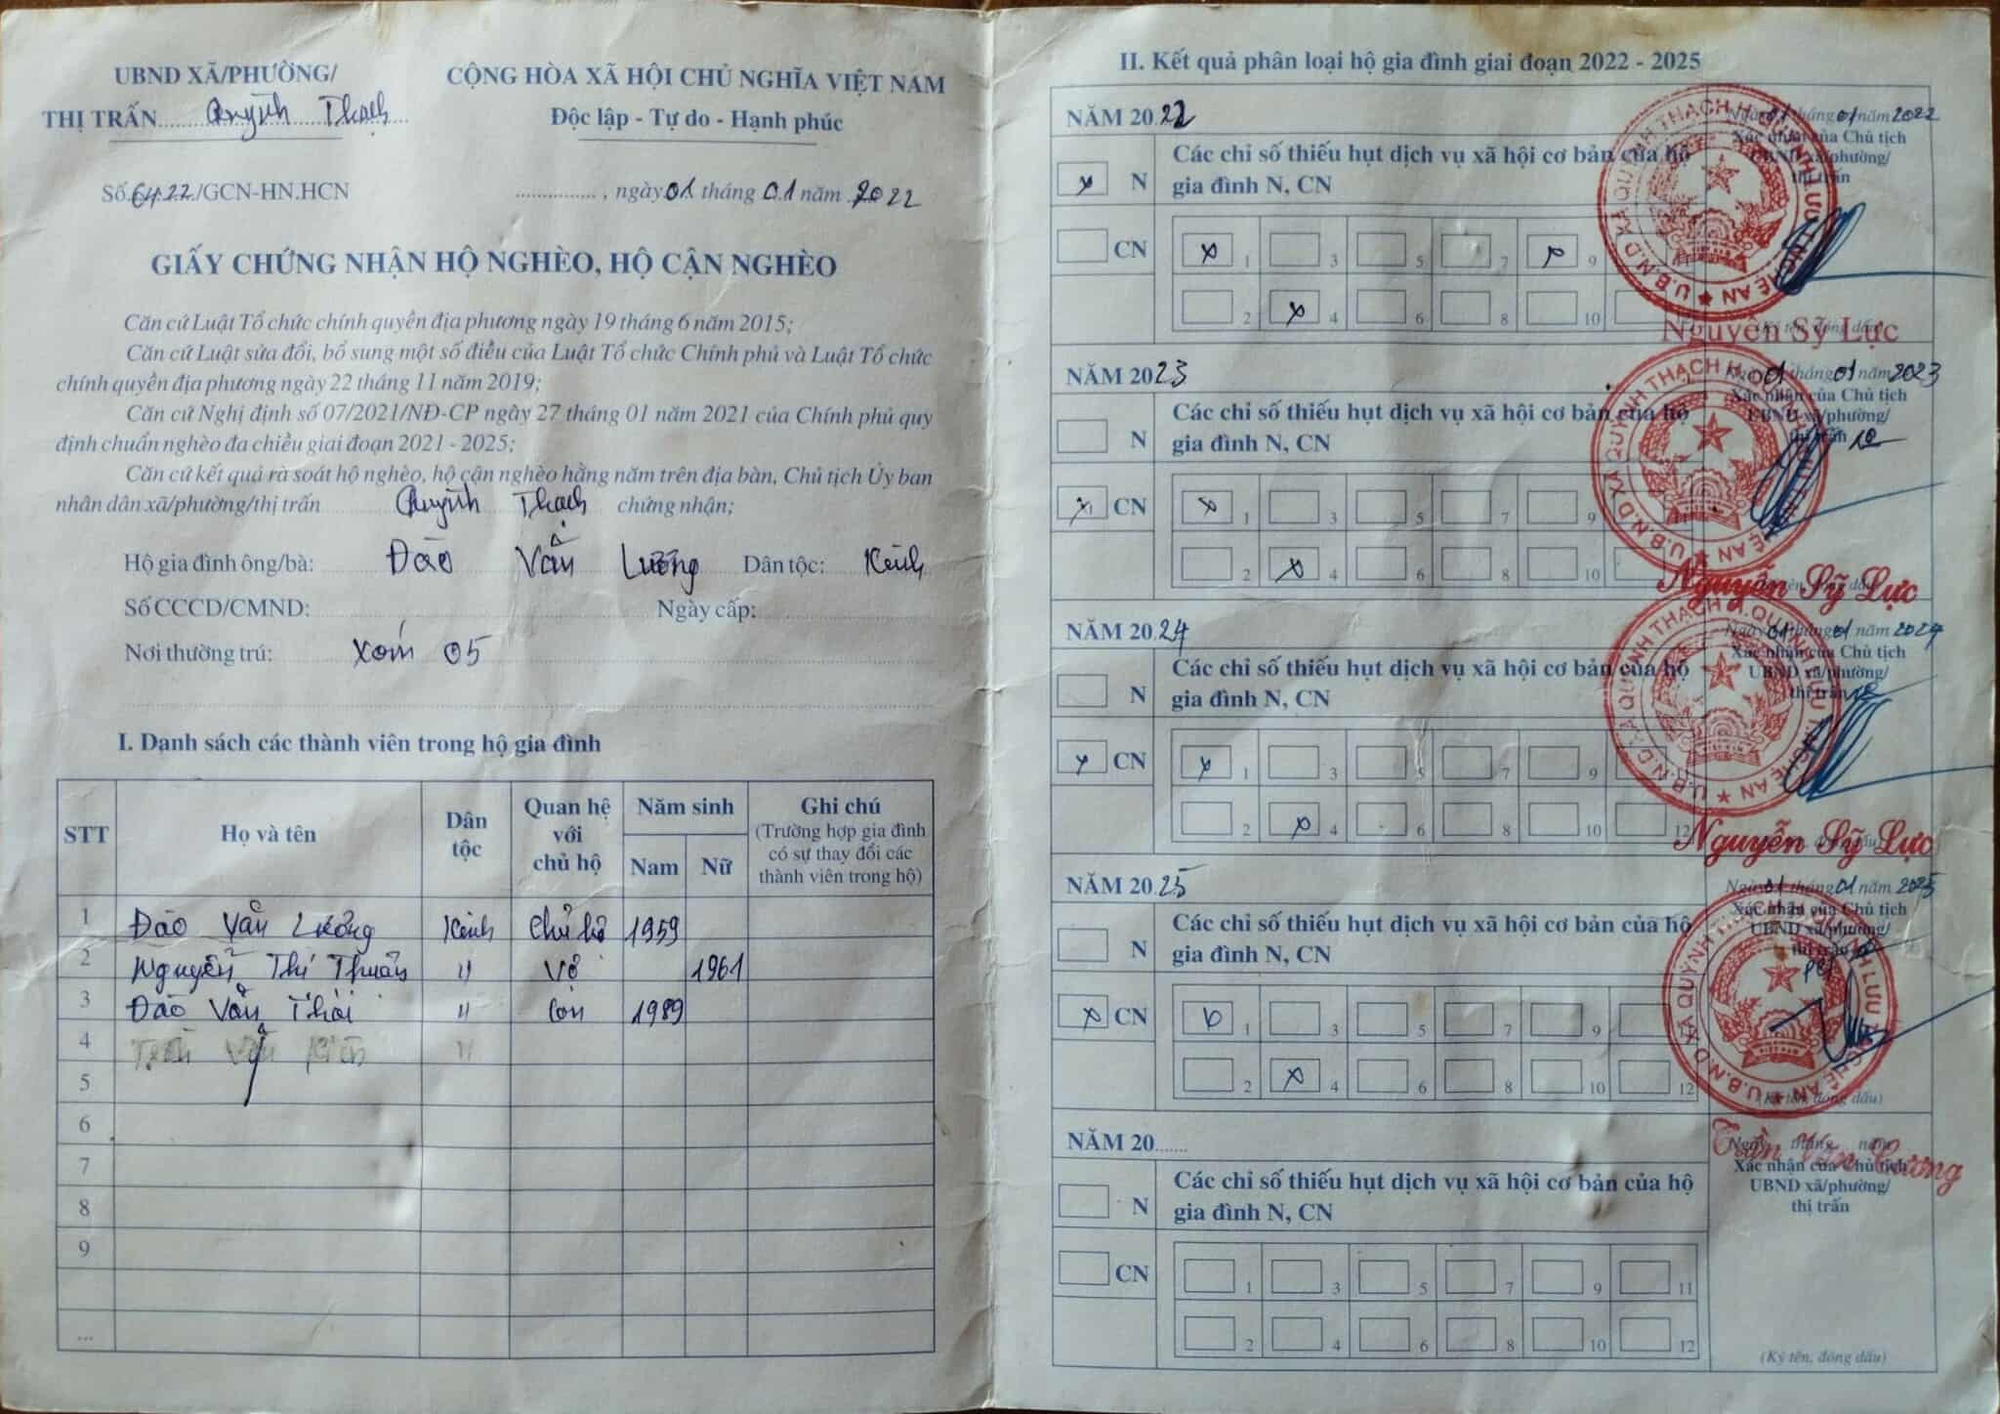 UBND XÃ/PHƯỜNG/
THỊ TRẤN Quỳnh Thạch
CỘNG HÒA XÃ HỘI CHỦ NGHĨA VIỆT NAM
Độc lập - Tự do - Hạnh phúc
Số: 6422/GCN-HN.HCN
.............., ngày 01 tháng 01 năm 2022
GIẤY CHỨNG NHẬN HỘ NGHÈO, HỘ CẬN NGHÈO
Căn cứ Luật Tổ chức chính quyền địa phương ngày 19 tháng 6 năm 2015;
Căn cứ Luật sửa đổi, bổ sung một số điều của Luật Tổ chức Chính phủ và Luật Tổ chức
chính quyền địa phương ngày 22 tháng 11 năm 2019;
Căn cứ Nghị định số 07/2021/NĐ-CP ngày 27 tháng 01 năm 2021 của Chính phủ quy
định chuẩn nghèo đa chiều giai đoạn 2021 - 2025;
Căn cứ kết quả rà soát hộ nghèo, hộ cận nghèo hằng năm trên địa bàn, Chủ tịch Ủy ban
nhân dân xã/phường/thị trấn Quỳnh Thạch chứng nhận;
Hộ gia đình ông/bà: Đào Văn Lương Dân tộc: Kinh
Số CCCD/CMND: Ngày cấp:
Nơi thường trú: xóm 05
I. Danh sách các thành viên trong hộ gia đình
STT Họ và tên Dân tộc Quan hệ với chủ hộ Năm sinh Ghi chú
Nam Nữ (Trường hợp gia đình có sự thay đổi các thành viên trong hộ)
1 Đào Văn Lương Kinh Chủ hộ 1959
2 Nguyễn Thị Thuân " Vợ 1961
3 Đào Văn Thái " Con 1989
4 Văn "
5
6
7
8
9
...
II. Kết quả phân loại hộ gia đình giai đoạn 2022 - 2025
NĂM 2022
Ngày 01 tháng 01 năm 2022
Xác nhận của Chủ tịch
UBND xã/phường/
thị trấn
x N
Các chỉ số thiếu hụt dịch vụ xã hội cơ bản của hộ
gia đình N, CN
CN
x 1 3 5 7 x 9
2 x 4 6 8 10
U.B.N.D XÃ QUỲNH THẠCH H.QUỲNH LƯU T.NGHỆ AN
Nguyễn Sỹ Lực
NĂM 2023
Ngày 01 tháng 01 năm 2023
Xác nhận của Chủ tịch
UBND xã/phường/
thị trấn
N
Các chỉ số thiếu hụt dịch vụ xã hội cơ bản của hộ
gia đình N, CN
x CN
x 1 3 5 7 9 11
2 x 4 6 8 10
U.B.N.D XÃ QUỲNH THẠCH H.QUỲNH LƯU T.NGHỆ AN
Nguyễn Sỹ Lực
NĂM 2024
Ngày 01 tháng 01 năm 2024
Xác nhận của Chủ tịch
UBND xã/phường/
thị trấn
N
Các chỉ số thiếu hụt dịch vụ xã hội cơ bản của hộ
gia đình N, CN
x CN
x 1 3 5 7 9
2 x 4 6 8 10 12
U.B.N.D XÃ QUỲNH THẠCH H.QUỲNH LƯU T.NGHỆ AN
Nguyễn Sỹ Lực
NĂM 2025
Ngày 01 tháng 01 năm 2025
Xác nhận của Chủ tịch
UBND xã/phường/
thị trấn
N
Các chỉ số thiếu hụt dịch vụ xã hội cơ bản của hộ
gia đình N, CN
x CN
x 1 3 5 7 9
2 x 4 6 8 10 12
(Ký tên, đóng dấu)
Trần Văn Cương
NĂM 20......
Ngày tháng năm
Xác nhận của Chủ tịch
UBND xã/phường/
thị trấn
N
Các chỉ số thiếu hụt dịch vụ xã hội cơ bản của hộ
gia đình N, CN
CN
1 3 5 7 9 11
2 4 6 8 10 12
(Ký tên, đóng dấu)